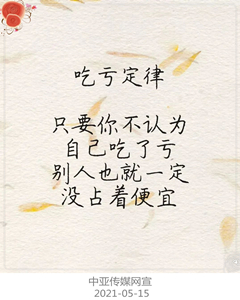 吃亏定律
只要你不认为
自己吃了亏
别人也就一定
没占着便宜
中亚传媒网宣
2021-05-15